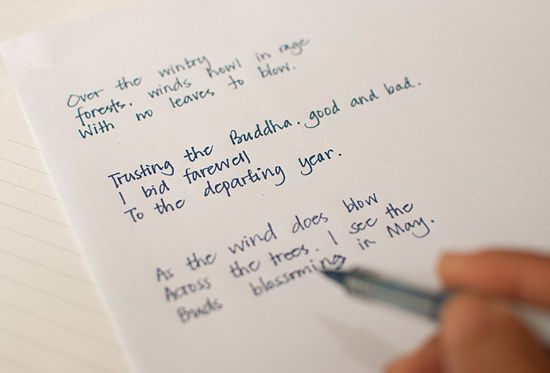 Over the wintry
forests. winds howl in rage
With no leaves to blow.
Trusting the Buddha. good and bad.
I bid farewell
To the departing year.
As the wind does blow
Across the trees. I see the
Buds blossoming in May.